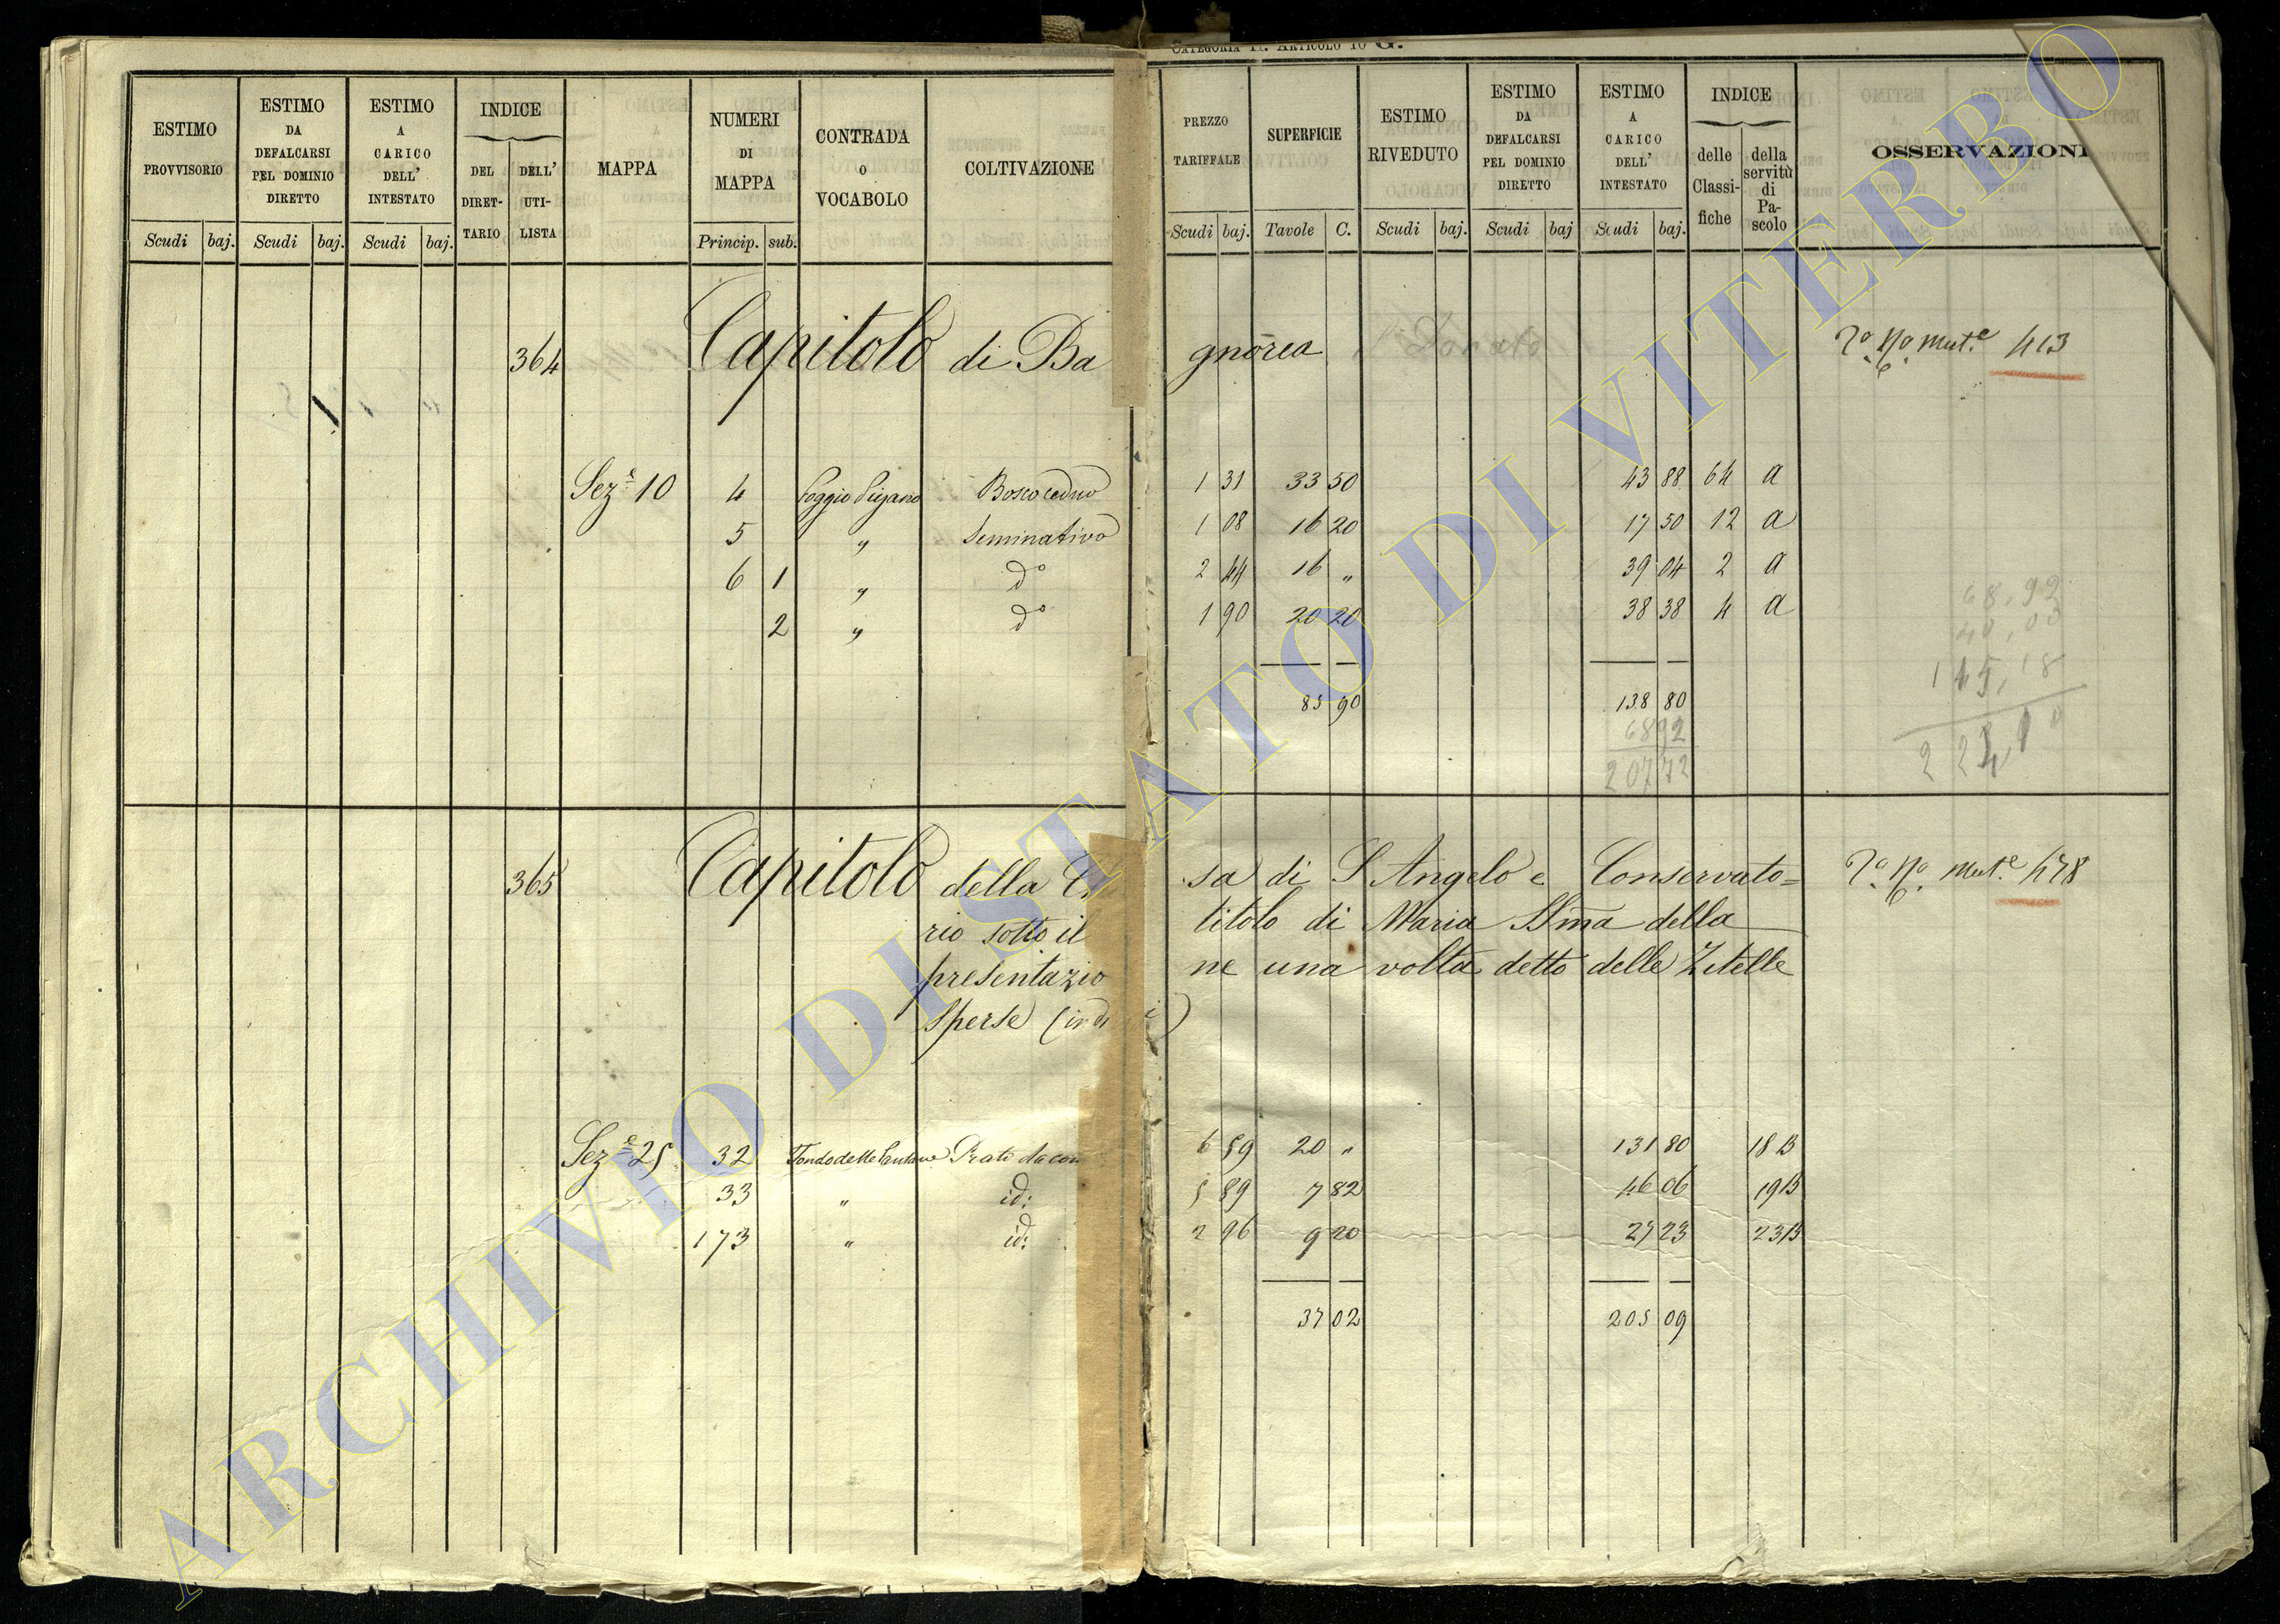 CATEGORIA II. ARTICOLO 10 G.
ESTIMO PROVVISORIO
ESTIMO DA DEFALCARSI PEL DOMINIO DIRETTO
ESTIMO A CARICO DELL' INTESTATO
INDICE
DEL DIRET- TARIO
DELL' UTI- LISTA
MAPPA
NUMERI DI MAPPA
CONTRADA o VOCABOLO
COLTIVAZIONE
PREZZO TARIFFALE
SUPERFICIE
ESTIMO RIVEDUTO
ESTIMO DA DEFALCARSI PEL DOMINIO DIRETTO
ESTIMO A CARICO DELL' INTESTATO
INDICE
delle Classi- fiche
della servitù di Pa- scolo
OSSERVAZIONI
Scudi baj. Scudi baj. Scudi baj. Princip. sub. Scudi baj. Tavole C. Scudi baj. Scudi baj Scudi baj.
364 Capitolo di Ba gnorea S. Donato 413
Sez.e 10 4 Poggio Pigano Bosco ceduo 1 31 33 50 43 88 64 a
5 " Seminativo 1 08 16 20 17 50 12 a
6 1 " do 2 44 16 " 39 04 2 a
2 " do 1 90 20 20 38 38 4 a
85 90 138 80
68 92
207 72
68,92
40,00
145,18
365 Capitolo della sa di S Angelo e Conservato= 478
rio sotto il titolo di Maria SSma della
presentazio ne una volta detto delle Zitelle
Sperse
Sez.e 25 32 Fondo delle Pantane Prato da 6 59 20 " 131 80 18 B
33 " id: 5 89 7 82 46 06 19 B
173 " id: 2 96 9 20 27 23 23 B
37 02 205 09
ARCHIVIO DI STATO DI VITERBO